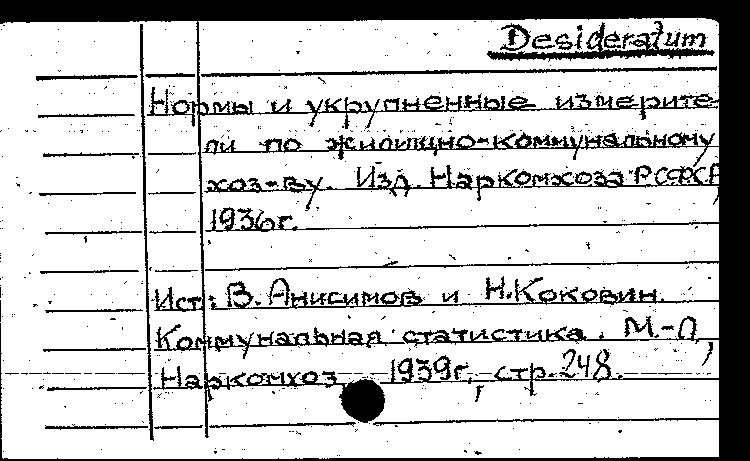 Desideratum
Нормы и укрупненные измерите-
ли по жилищно-коммунальному
хоз-ву. Изд. Наркомхоза РСФСР,
1936г.
Ист.: В. Анисимов и Н. Коковин.
Коммунальная статистика. М.-Л,
Наркомхоз, 1939г., стр. 248.